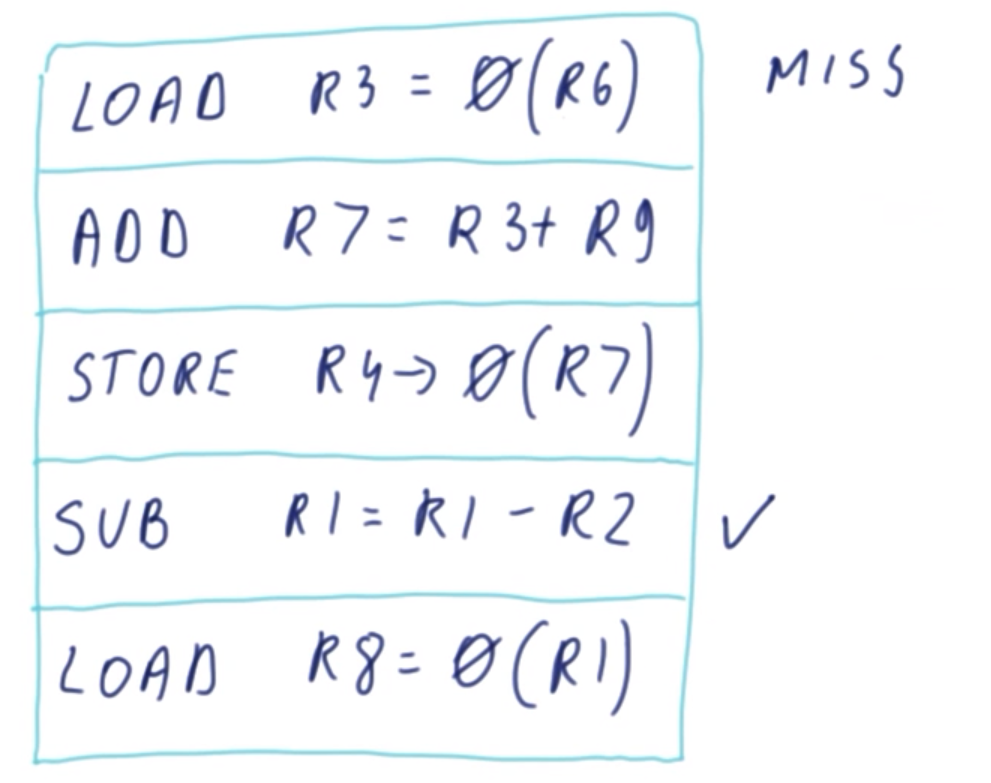 LOAD R3 = Ø(R6) MISS
ADD R7 = R3 + R9
STORE R4 → Ø(R7)
SUB R1 = R1 - R2 ✓
LOAD R8 = Ø(R1)